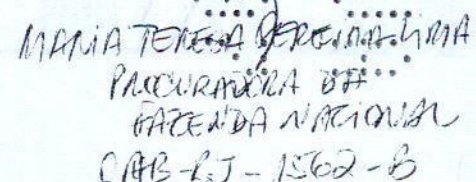 MARIA TERESA PEREIRA LIMA
PROCURADORA DA
FAZENDA NACIONAL
OAB-RJ-1562-B